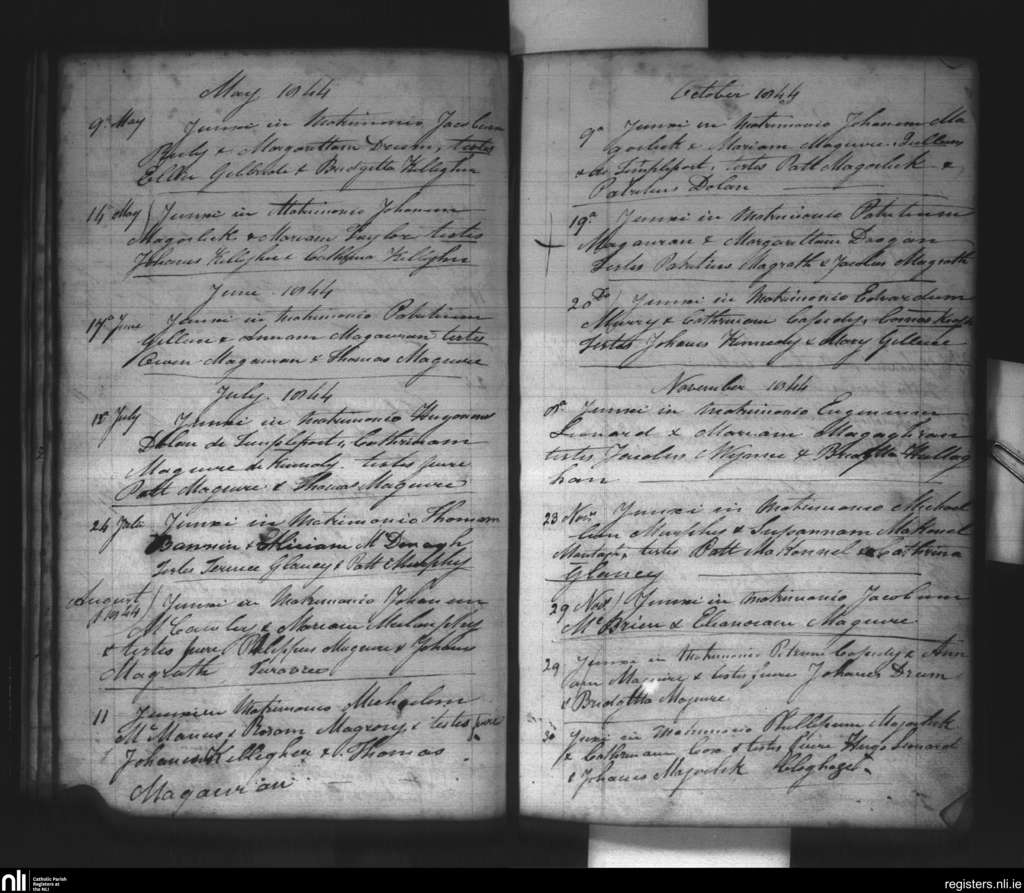 May 1844
9th May Junxi in Matrimonio Jacobum
& Margarettam Drum, testes
Ellen & Bridgetta Killighn
14 May Junxi in Matrimonio Johanem
Magorlick & Mariam Taylor testes
Johanes Killighn & Catherina Killighn
June 1844
17th June Junxi in Matrimonio Patritium
Gilleen & Annam Magauran testes
Owen Magauran & Thomas Maguire
July 1844
18 July Junxi in Matrimonio Hugonem
Dolan de Templeport & Cathrinam
Maguire de testes fuere
Patt Maguire & Thomas Maguire
24 July Junxi in Matrimonio Thomam
Bannin & Miriam Mc Donagh
Testes Terence Glancy & Patt Murphy
August
1844 Junxi in Matrimonio Johanem
Mc Cawley & Mariam
& testes fuere Philippus Maguire & Johanes
Magrath
11 Junxi in Matrimonio Michaelem
Mc Manus & Rosam Magrory & testes fuere
Johanes Killigher & Thomas
Magauran
October 1844
9th Junxi in Matrimonio Johanem Ma
gorlick & Mariam Maguire
& de Templeport, testes Patt Magorlick &
Patritius Dolan
19th Junxi in Matrimonio Patritium
Magauran & Margarettam Drogan
Testes Patritius Magrath & Jacobus Magrath
20 Do Junxi in Matrimonio Edvardum
Murry & Cathrinam Cassedy,
Testes Johanes Kennedy & Mary Gilleece
November 1844
8th Junxi in Matrimonio Eugenium
Leonard & Mariam Magaghran
testes Jacobus & Bridgetta
han
23 Novr Junxi in Matrimonio Michael
lem Murphy & Sussannam McKonnel
testes Patt McKonnel & Catherina
Glancey
29 Novr Junxi in Matrimonio Jacobum
Mc Brien & Elianoram Maguire
29 Junxi in Matrimonio Petrum Cassedy & Ann
am Maguire & testes fuere Johanes Drum
& Bridgetta Maguire
30 Junxi in Matrimonio Phillipum Magorlick
& Cathrinam Cox & testes fuere Hugo Leonard
& Johanes Magorlick
nli
Catholic Parish
Registers at
the NLI
registers.nli.ie